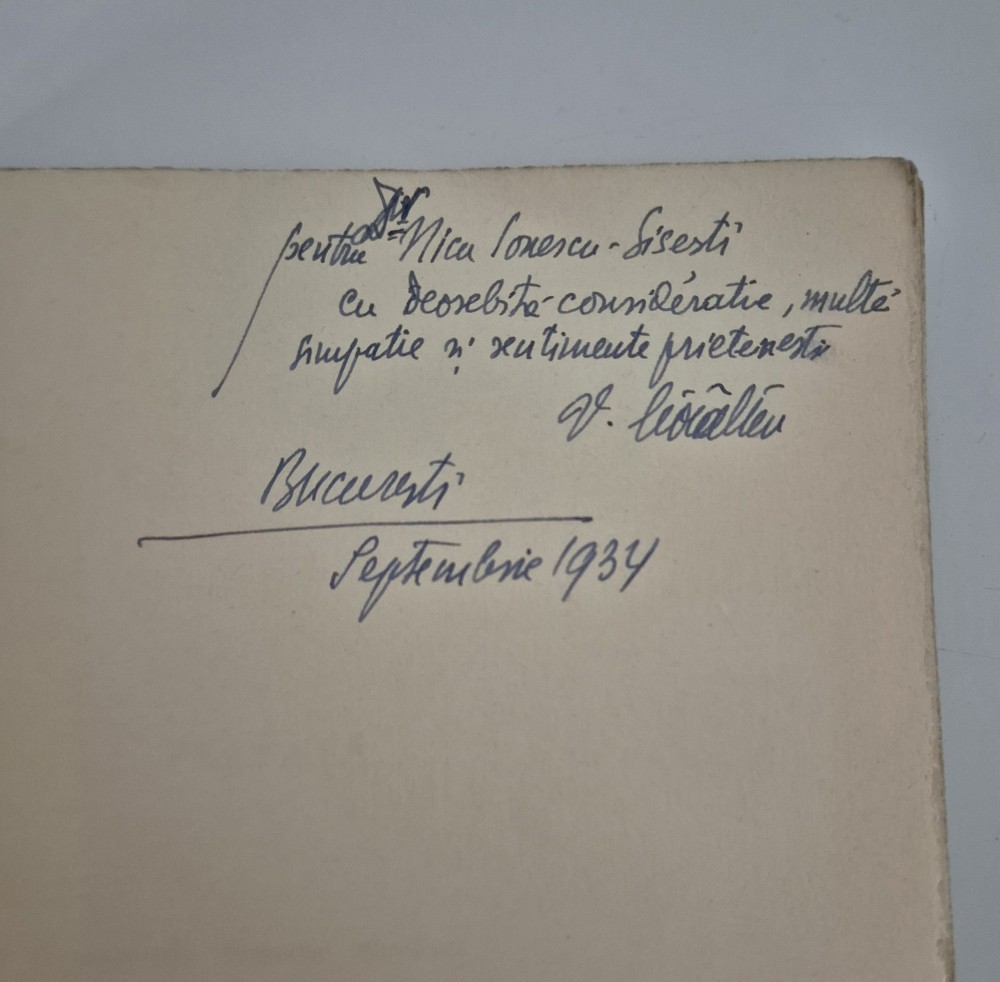 pentru Dr Nicu Ionescu-Sisesti
cu deosebită considerație, multă
simpatie și sentimente prietenești
V.
București
Septembrie 1934